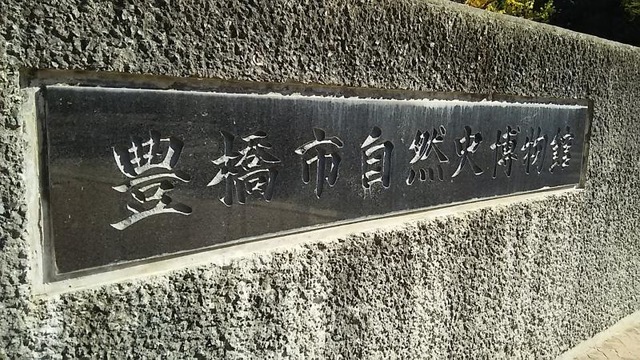 豊橋市自然史博物館